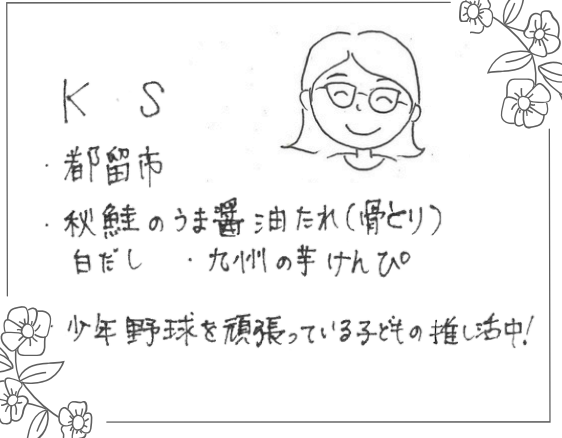 K S
・都留市
・秋鮭のうま醤油たれ(骨とり)
白だし ・九州の芋けんぴ
・少年野球を頑張っている子どもの推し活中!